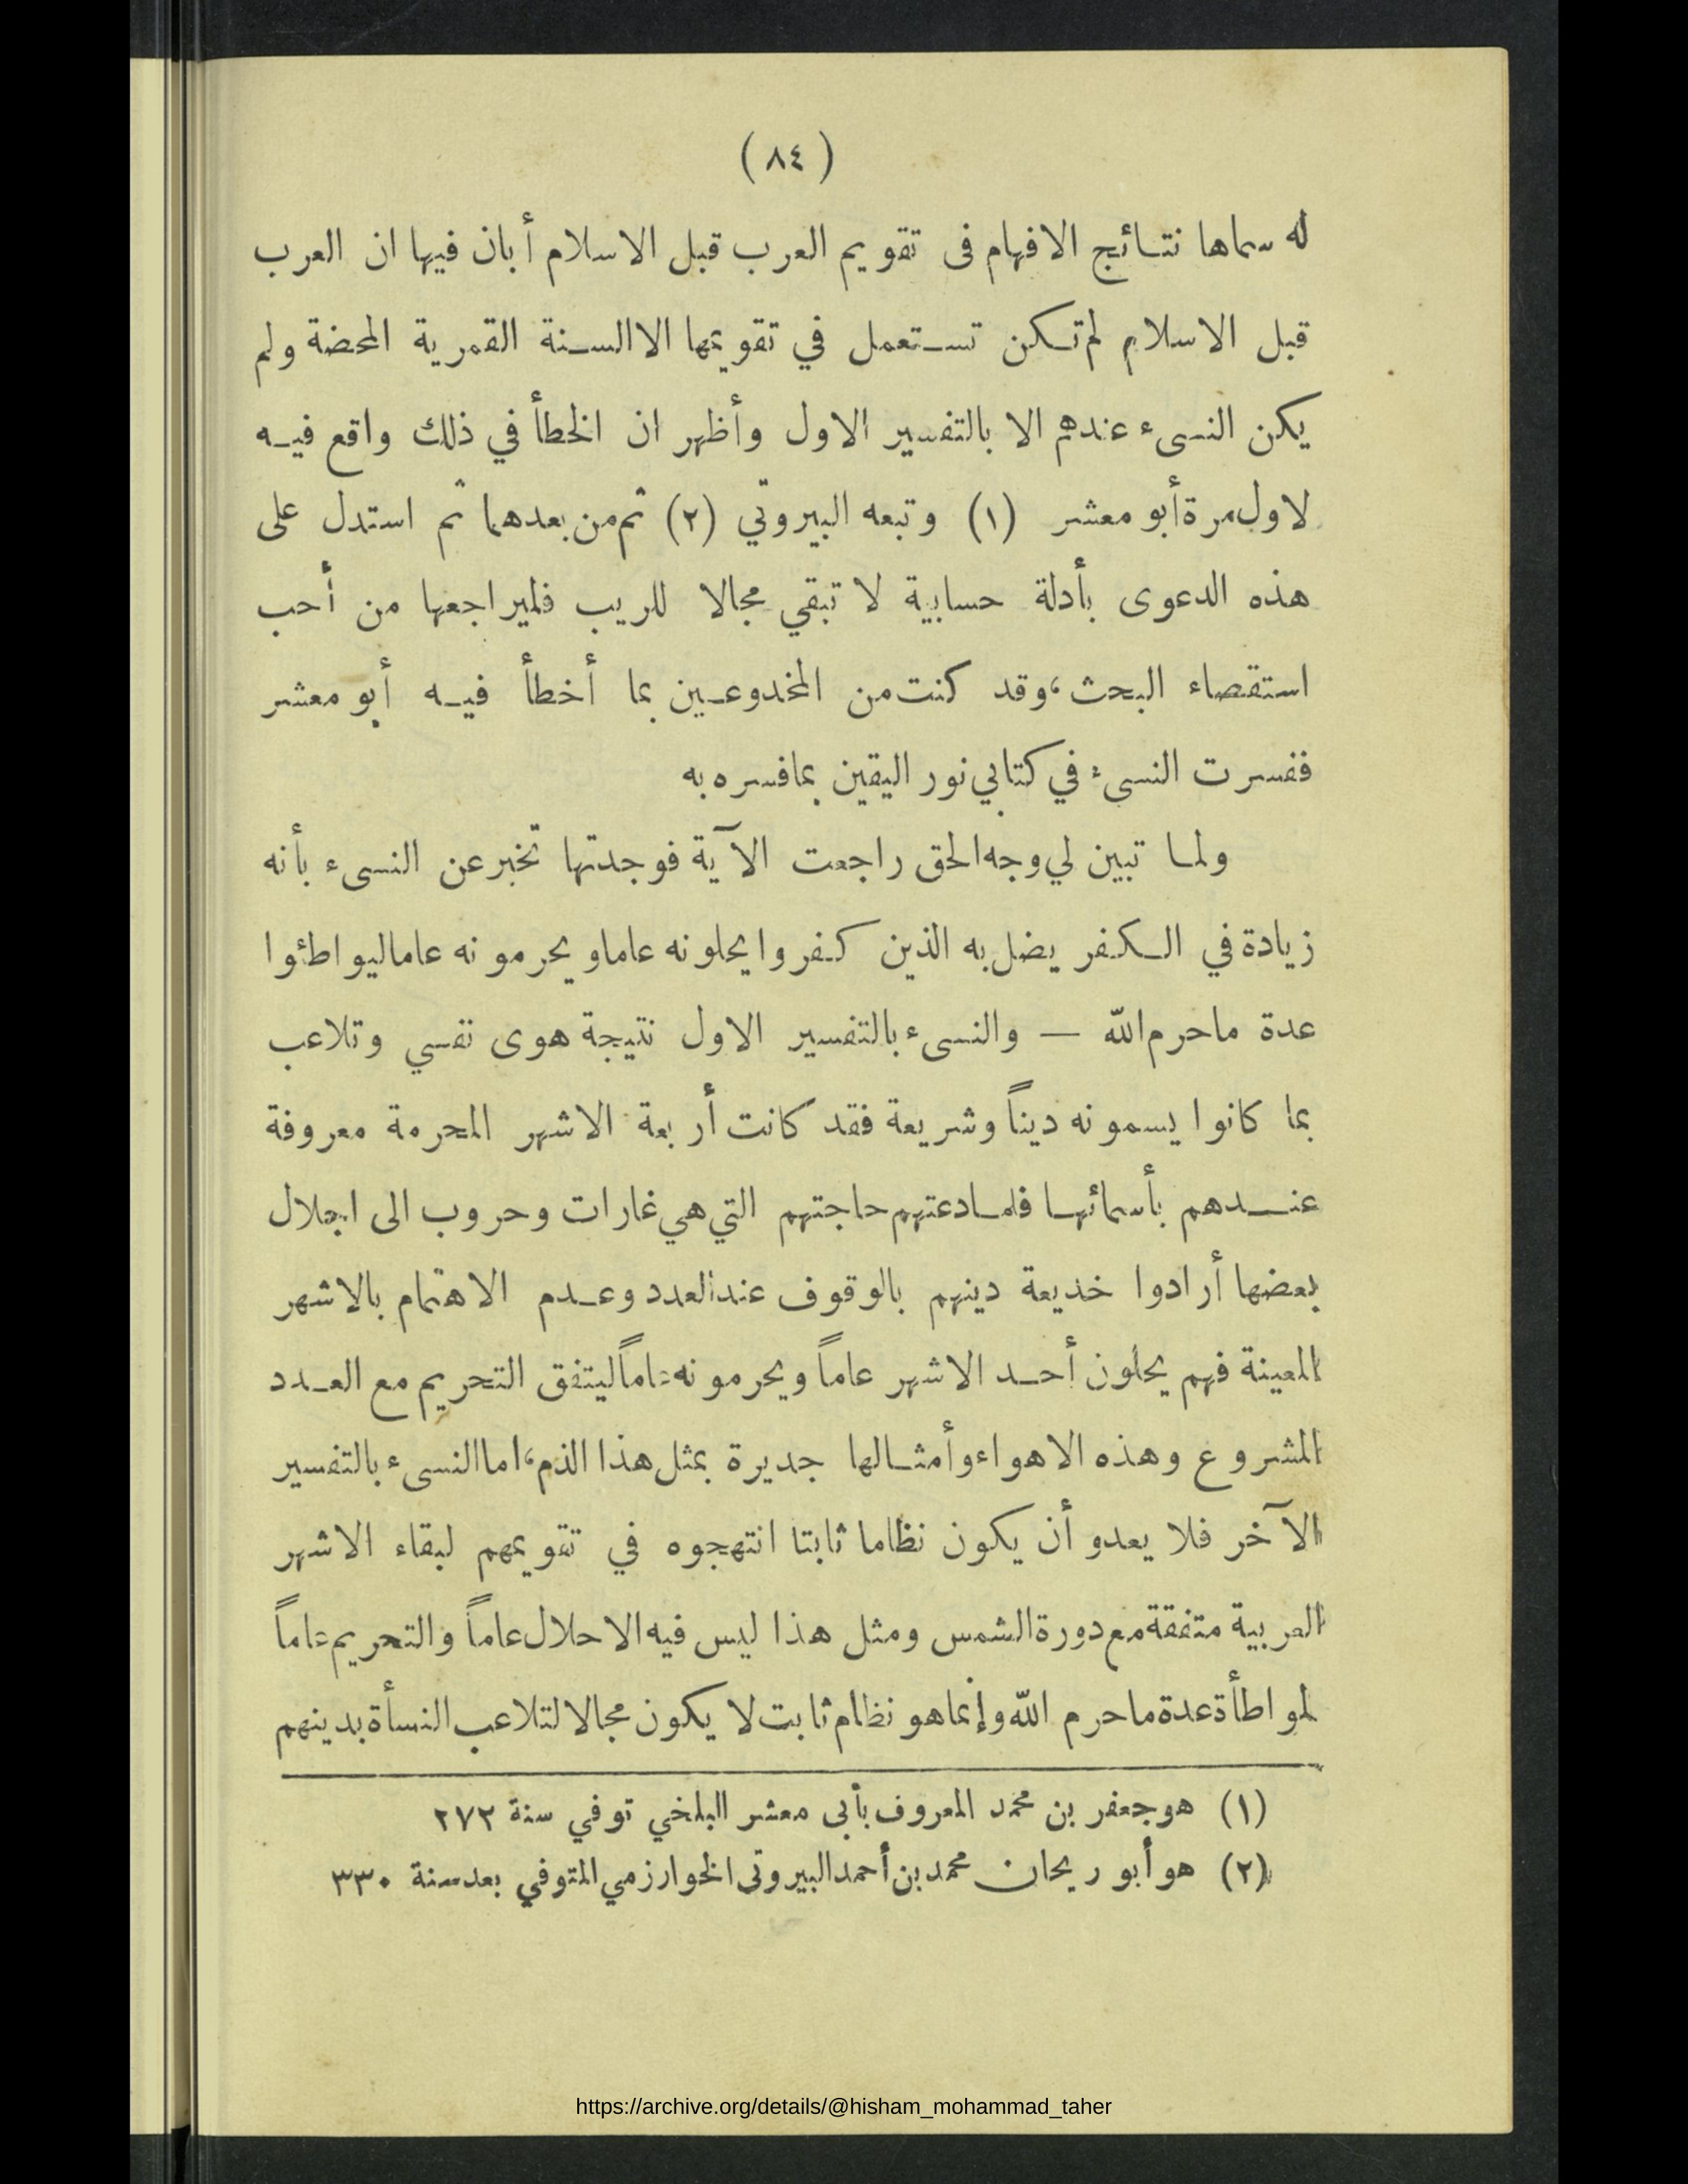 ( ٨٤ )
له سماها نتائج الافهام فى تقويم العرب قبل الاسلام أبان فيها ان العرب
قبل الاسلام لم تكن تستعمل في تقويمها الا السنة القمرية المحضة ولم
يكن النسىء عندهم الا بالتفسير الاول وأظهر ان الخطأ في ذلك واقع فيه
لاول مرة أبو معشر (١) وتبعه البيروتي (٢) ثم من بعدهما ثم استدل على
هذه الدعوى بأدلة حسابية لا تبقي مجالا للريب فليراجعها من أحب
استقصاء البحث، وقد كنت من المخدوعين بما أخطأ فيه أبو معشر
ففسرت النسىء في كتابي نور اليقين بما فسره به
ولما تبين لي وجه الحق راجعت الآية فوجدتها تخبر عن النسىء بأنه
زيادة في الكفر يضل به الذين كفروا يحلونه عاما ويحرمونه عاما ليواطئوا
عدة ما حرم الله — والنسىء بالتفسير الاول نتيجة هوى نفسي وتلاعب
بما كانوا يسمونه ديناً وشريعة فقد كانت أربعة الاشهر المحرمة معروفة
عندهم بأسمائها فلما دعتهم حاجتهم التي هي غارات وحروب الى احلال
بعضها أرادوا خديعة دينهم بالوقوف عند العدد وعدم الاهتمام بالاشهر
المعينة فهم يحلون أحد الاشهر عاماً ويحرمونه عاماً ليتفق التحريم مع العدد
المشروع وهذه الاهواء وأمثالها جديرة بمثل هذا الذم، اما النسىء بالتفسير
الآخر فلا يعدو أن يكون نظاما ثابتا انتهجوه في تقويمهم لبقاء الاشهر
العربية متفقة مع دورة الشمس ومثل هذا ليس فيه الاحلال عاماً والتحريم عاماً
لمواطأة عدة ما حرم الله وإنما هو نظام ثابت لا يكون مجالا لتلاعب النسأة بدينهم
(١) هو جعفر بن محمد المعروف بأبى معشر البلخي توفي سنة ٢٧٢
(٢) هو أبو ريحان محمد بن أحمد البيروتى الخوارزمي المتوفي بعد سنة ٣٣٠
https://archive.org/details/@hisham_mohammad_taher